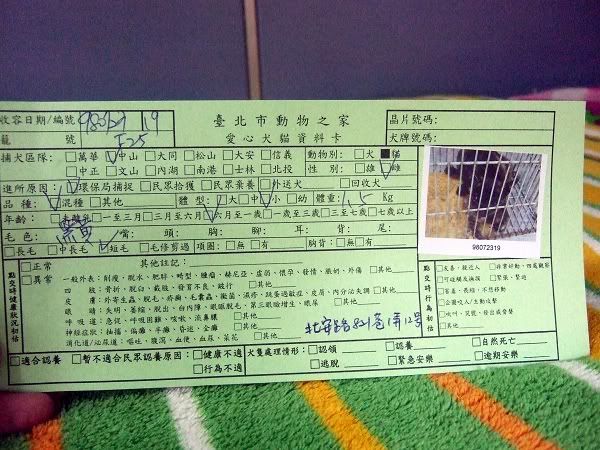 收容日期/編號 98.7.23 19 臺北市動物之家 晶片號碼:
籠 號 F25 愛心犬貓資料卡 犬牌號碼:
捕犬區隊: □萬華 □中山 □大同 □松山 □大安 □信義 動物別: □犬 ■貓
□中正 □文山 □內湖 □南港 □士林 □北投 性 別: □雄 □雌
進所原因: □環保局捕捉 □民眾拾獲 □民眾棄養 □外送犬 □回收犬
品種: □混種 □其他 體型: □大 □中 □小 □幼 體重: 1.5 Kg
年齡: □未離乳 □一至三月 □三月至六月 □六月至一歲 □一歲至三歲 □三至七歲 □七歲以上
毛色: 黑 嘴: 頭: 胸: 腳: 耳: 背: 尾:
□長毛 □中長毛 □短毛 □毛修剪過 項圈: □無 □有 胸背: □無 □有
98072319
點交時健康狀況初估
□正常 其他註記:
□異常 一般外表: 削瘦、脫水、肥胖、畸型、腫瘤、赫尼亞、虛弱、懷孕、發情、脹奶、外傷 □其他
四 肢: 骨折、脫臼、截肢、發育不良、跛行 □其他
皮 膚: 外寄生蟲、脫毛、疥癬、毛囊蟲、黴菌、濕疹、跳蚤過敏症、皮屑、內分泌失調 □其他
眼 睛: 失明、萎縮、脫出、白內障、眼瞼脫毛、第三眼瞼增生、眼屎 □其他
呼 吸 道: 急促、呼吸困難、咳嗽、流鼻膿 □其他
神經症狀: 抽搐、偏癱、半癱、昏迷、全癱 □其他
消化道/泌尿道: 嘔吐、腹瀉、血便、血尿、菜花 □其他
北安路821巷1弄12號
點交時行為初估
□友善、接近人 □非常好動、四處觀察
□可碰觸及撫摸 □緊張、緊迫
□害羞、畏縮、不想移動
□企圖咬人/主動攻擊
□吠叫、咒號、發出威脅聲
□其他
□適合認養 □暫不適合民眾認養原因: □健康不適 犬隻處理情形: □認領 □認養 □自然死亡
□行為不適 □逃脫 □緊急安樂 □逾期安樂